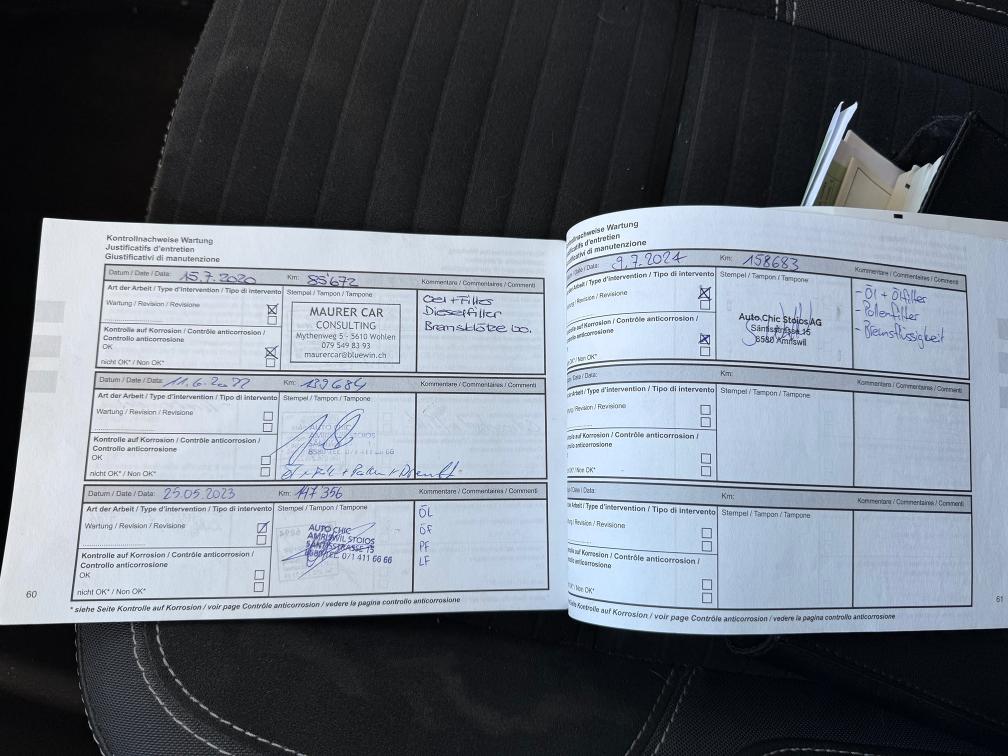 Kontrollnachweise Wartung
Justificatifs d'entretien
Giustificativi di manutenzione
Datum / Date / Data: 15.7.2020 Km: 85'672 Kommentare / Commentaires / Commenti
Art der Arbeit / Type d'intervention / Tipo di intervento Stempel / Tampon / Tampone
Wartung / Revision / Revisione
Kontrolle auf Korrosion / Contrôle anticorrosion / Controllo anticorrosione
OK
nicht OK* / Non OK*
MAURER CAR
CONSULTING
Mythenweg 5 - 5610 Wohlen
079 549 83 93
maurercar@bluewin.ch
Oel + Filter
Dieselfilter
Bremsklötze
Datum / Date / Data: 11.6.2022 Km: 139684 Kommentare / Commentaires / Commenti
Art der Arbeit / Type d'intervention / Tipo di intervento Stempel / Tampon / Tampone
Wartung / Revision / Revisione
Kontrolle auf Korrosion / Contrôle anticorrosion /
Controllo anticorrosione
OK
nicht OK* / Non OK*
AUTO CHIC
Datum / Date / Data: 25.05.2023 Km: 147'356 Kommentare / Commentaires / Commenti
Art der Arbeit / Type d'intervention / Tipo di intervento Stempel / Tampon / Tampone
Wartung / Revision / Revisione
Kontrolle auf Korrosion / Contrôle anticorrosion /
Controllo anticorrosione
OK
nicht OK* / Non OK*
AUTO CHIC
AMRISWIL STOIOS
SÄNTISSTRASSE 15
8580 TEL. 071 411 66 66
ÖL
ÖF
PF
LF
* siehe Seite Kontrolle auf Korrosion / voir page Contrôle anticorrosion / vedere la pagina controllo anticorrosione
60
Kontrollnachweise Wartung
Justificatifs d'entretien
Giustificativi di manutenzione
/ Date / Data: 9.7.2024 Km: 158683 Kommentare / Commentaires / Commenti
Arbeit / Type d'intervention / Tipo di intervento Stempel / Tampon / Tampone
/ Revision / Revisione
auf Korrosion / Contrôle anticorrosion /
anticorrosione
OK* / Non OK*
Auto Chic Stoios AG
Säntisstrasse 15
8580 Amriswil
- Öl + Ölfilter
- Pollenfilter
- Bremsflüssigkeit
/ Date / Data: Km: Kommentare / Commentaires / Commenti
Arbeit / Type d'intervention / Tipo di intervento Stempel / Tampon / Tampone
/ Revision / Revisione
auf Korrosion / Contrôle anticorrosion /
anticorrosione
OK* / Non OK*
/ Date / Data: Km: Kommentare / Commentaires / Commenti
Arbeit / Type d'intervention / Tipo di intervento Stempel / Tampon / Tampone
/ Revision / Revisione
auf Korrosion / Contrôle anticorrosion /
anticorrosione
OK* / Non OK*
Seite Kontrolle auf Korrosion / voir page Contrôle anticorrosion / vedere la pagina controllo anticorrosione
61